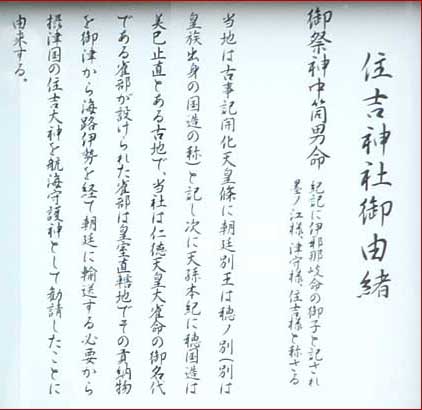 住吉神社御由緒
御祭神中筒男命
紀記に伊耶那岐命の御子と記され
墨ノ江様、津守様、住吉様と称さる
当地は古事記開化天皇條に朝廷別王は穂ノ別(別は
皇族出身の国造の称)と記し次に天孫本紀に穂国造は
美己止直とある古地で、当社は仁徳天皇大雀命の御名代
である雀部が設けられた雀部は皇室直轄地でその貢納物
を御津から海路伊勢を経て朝廷に輸送する必要から
摂津国の住吉大神を航海守護神として勧請したことに
由来する。